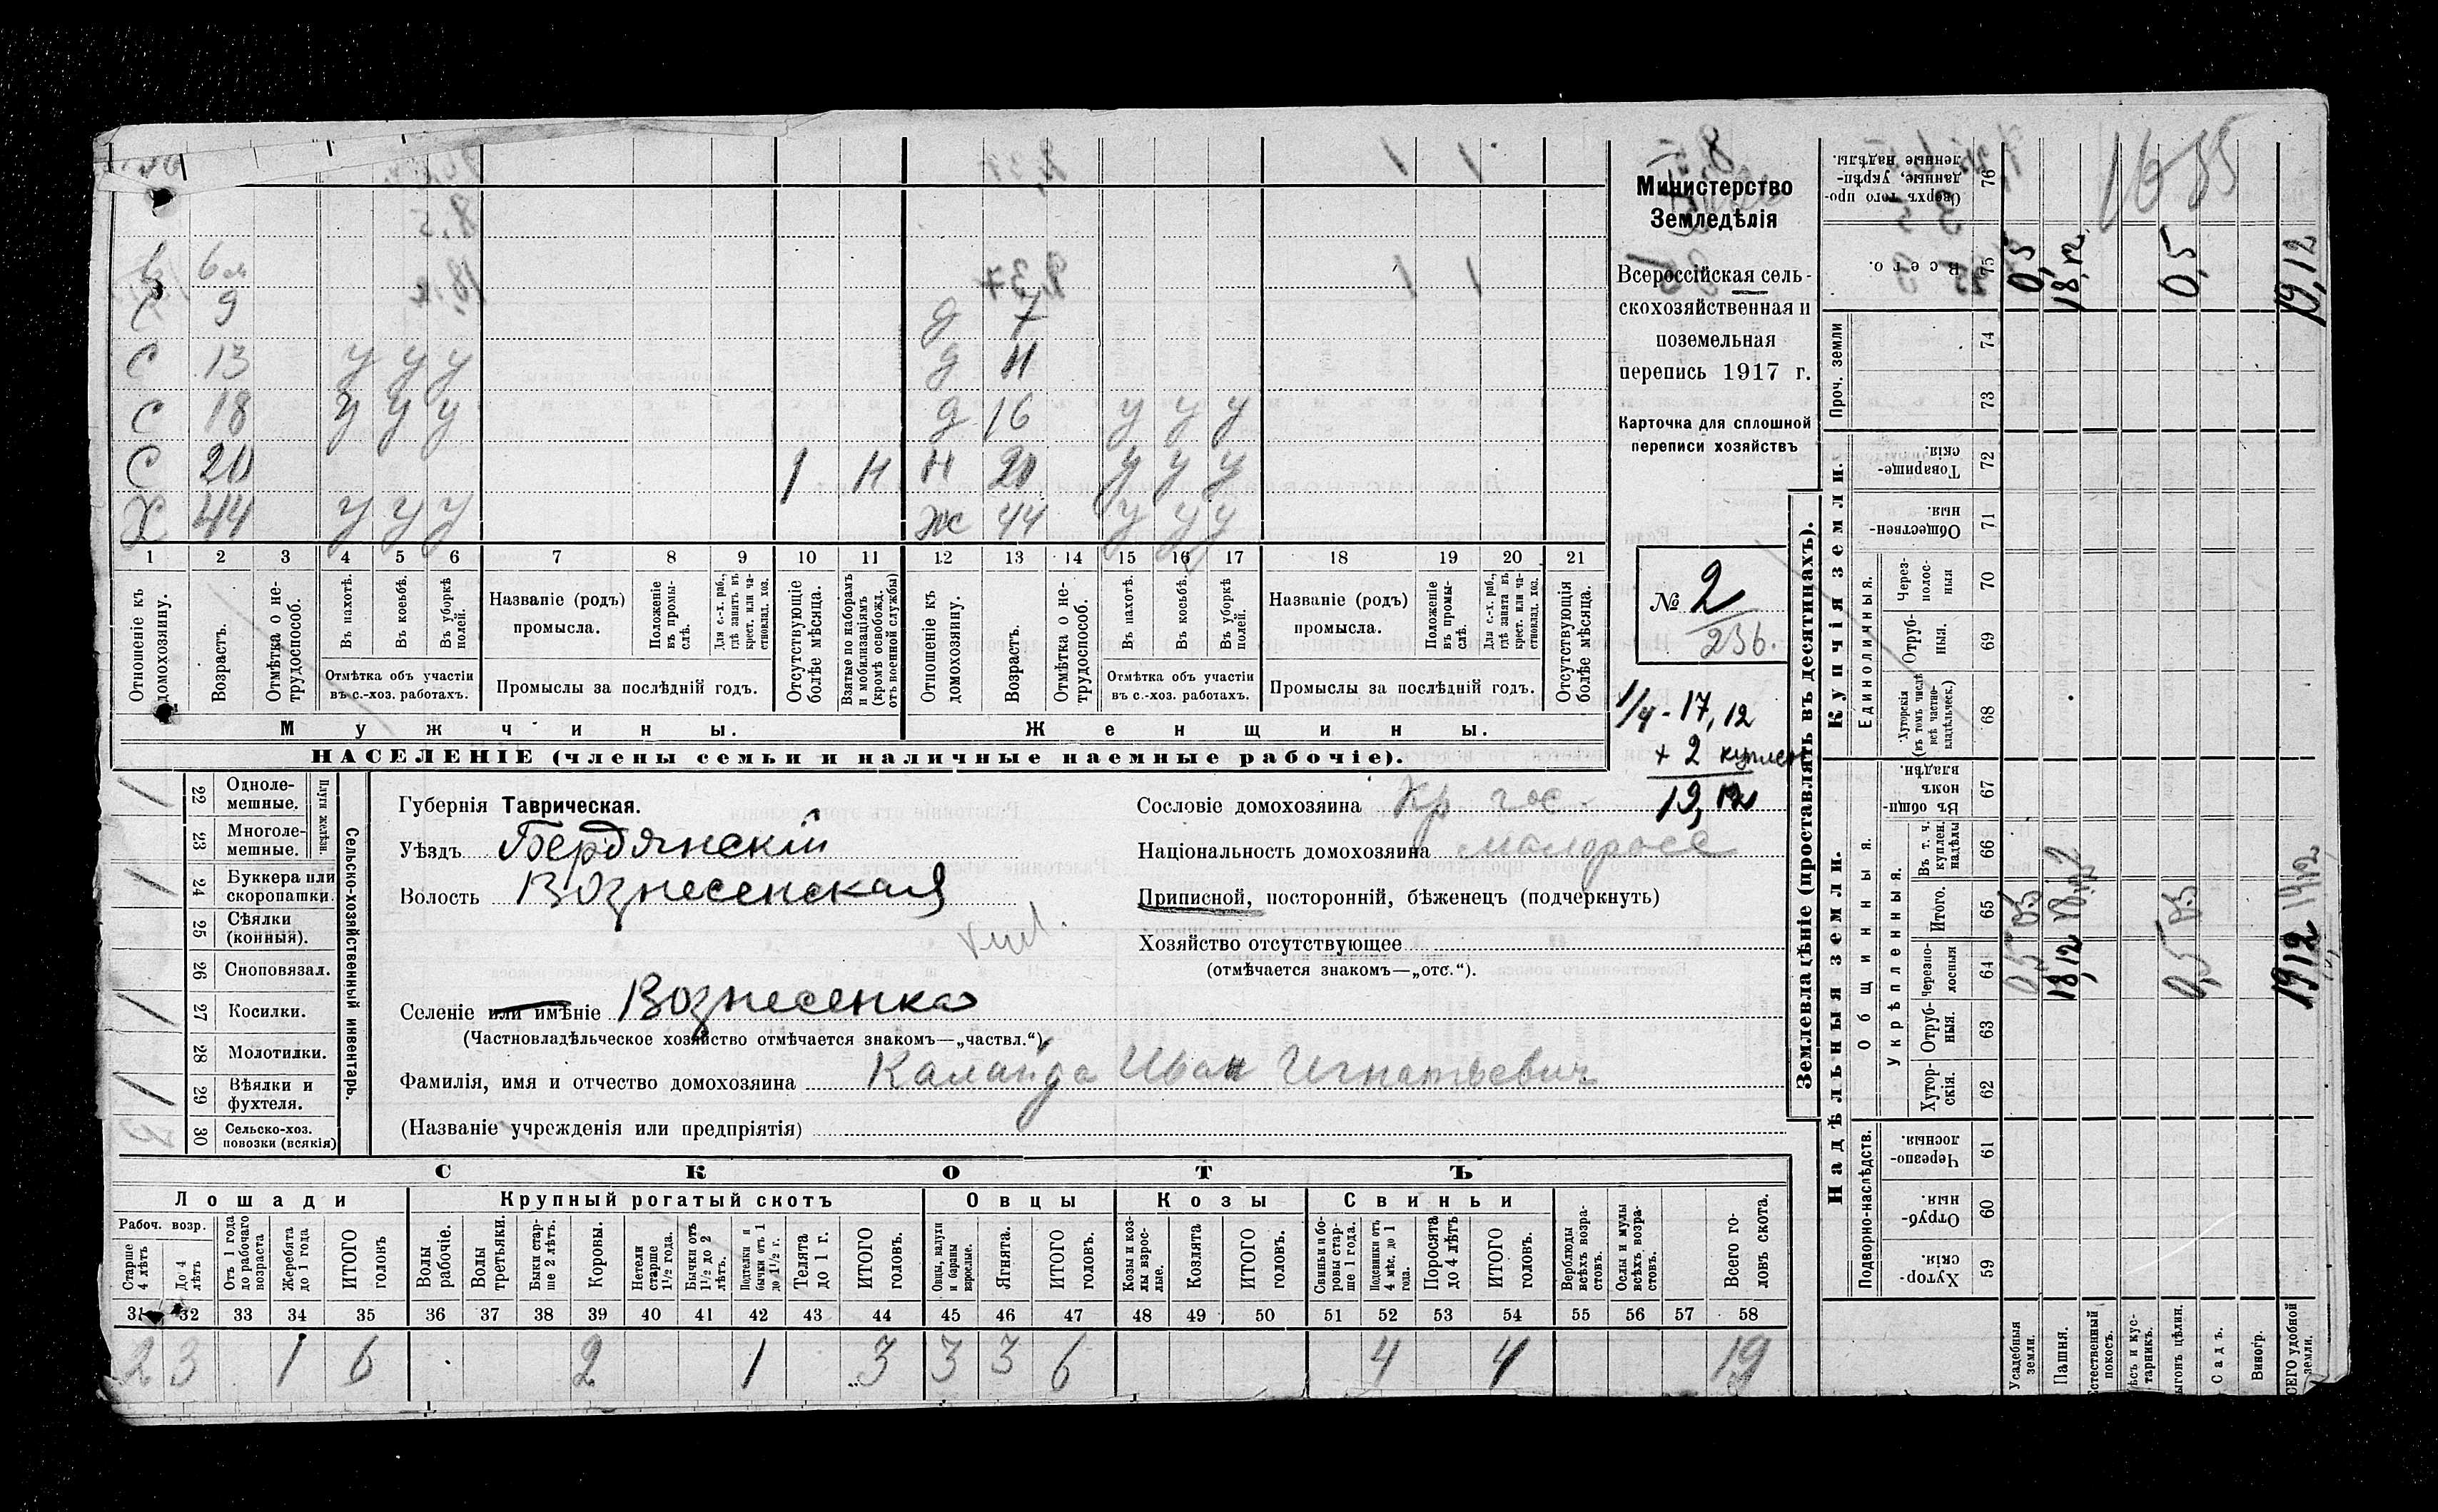 6 м
С 9 д 7
С 13 у у у д 11
С 18 у у у д 16 у у у
С 20 1 Н Н 20 у у у
Х 44 у у у ж 44 у у у
1 2 3 4 5 6 7 8 9 10 11 12 13 14 15 16 17 18 19 20 21
Отношеніе къ домохозяину.
Возрастъ.
Отмѣтка о не-трудоспособ.
Въ пахотѣ.
Въ косьбѣ.
Въ уборкѣ полей.
Отмѣтка объ участіи
въ с.-хоз. работахъ.
Названіе (родъ)
промысла.
Положеніе въ промы-слѣ.
Для с.-х. раб., гдѣ занятъ въ крест. или ча-стновлад. хоз.
Промыслы за послѣдній годъ.
Отсутствующіе болѣе мѣсяца.
Взятые по наборамъ и мобилизаціямъ (кромѣ освобожд. отъ военной службы)
Отношеніе къ домохозяину.
Возрастъ.
Отмѣтка о не-трудоспособ.
Въ пахотѣ.
Въ косьбѣ.
Въ уборкѣ полей.
Отмѣтка объ участіи
въ с.-хоз. работахъ.
Названіе (родъ)
промысла.
Положеніе въ промы-слѣ.
Для с.-х. раб., гдѣ занята въ крест. или ча-стновлад. хоз.
Промыслы за послѣдній годъ.
Отсутствующія болѣе мѣсяца.
Мужчины. Женщины.
НАСЕЛЕНІЕ (члены семьи и наличные наемные рабочіе).
Министерство
Земледѣлія
Всероссійская сель-
скохозяйственная и
поземельная
перепись 1917 г.
Карточка для сплошной
переписи хозяйствъ
№ 2
236.
1/4 - 17,12
+ 2 куплен
19,12
1 22 Одноле-мешные.
23 Многоле-мешные.
Плуги желѣзн.
1 24 Буккера или скоропашки.
25 Сѣялки (конныя).
26 Сноповязал.
1 27 Косилки.
28 Молотилки.
1 29 Вѣялки и фухтеля.
30 Сельско-хоз. повозки (всякія)
Сельско-хозяйственный инвентарь.
Губернія Таврическая.
Уѣздъ Бердянскій
Волость Вознесенская
Селеніе или имѣніе Вознесенка
(Частновладѣльческое хозяйство отмѣчается знакомъ—„частвл.“).
Фамилія, имя и отчество домохозяина Калайда Иван Игнатьевич
(Названіе учрежденія или предпріятія)
Сословіе домохозяина Кр гос.
Національность домохозяина малоросс
Приписной, посторонній, бѣженецъ (подчеркнуть)
Хозяйство отсутствующее
(отмѣчается знакомъ—„отс.“).
СКОТЪ
Лошади Крупный рогатый скотъ Овцы Козы Свиньи
Рабоч. возр.
Старше 4 лѣтъ
До 4 лѣтъ
Отъ 1 года до рабочаго возраста
Жеребята до 1 года
ИТОГО головъ
Волы рабочіе.
Волы третьяки.
Быки стар-ше 2 лѣтъ.
Коровы.
Нетели старше 1½ года.
Бычки отъ 1½ до 2 лѣтъ.
Подтелки и бычки отъ 1 до 1½ г.
Телята до 1 г.
ИТОГО головъ.
Овцы, валухи и бараны взрослые.
Ягнята.
ИТОГО головъ.
Козы и коз-лы взрос-лые.
Козлята
ИТОГО головъ.
Свиньи и бо-ровы стар-ше 1 года.
Подсвинки отъ 4 мѣс. до 1 года.
Поросята до 4 лѣтъ
ИТОГО головъ.
Верблюды всѣхъ возра-стовъ.
Ослы и мулы всѣхъ возра-стовъ.
Всего го-ловъ скота.
31 32 33 34 35 36 37 38 39 40 41 42 43 44 45 46 47 48 49 50 51 52 53 54 55 56 57 58
2 3 1 6 2 1 3 3 3 6 4 4 19
Землевладѣніе (проставлять въ десятинахъ).
Надѣльныя земли. Купчія земли. Проч. земли
Подворно-наслѣдств. Общинныя. Укрѣпленныя. Единоличныя.
Хутор-скія. 59
Отруб-ныя. 60
Черезпо-лосныя. 61
Хутор-скія. 62
Отруб-ныя. 63
Черезпо-лосныя 64
Итого. 65
Въ т. ч. куплен. надѣлы 66
Въ общи-номъ владѣн. 67
Хуторскія (въ томъ числѣ всѣ частно-владѣльческ.) 68
Отруб-ныя. 69
Через-полос-ныя 70
Обществен-ныя. 71
Товарище-скія. 72
73
74
Всего. 75
Сверхъ того про-данные, укрѣп-ленные надѣлы. 76
Усадебныя земли. 0,5 0,5
Пашня. 18,12 18,12
Естественный покосъ.
лѣсъ и кус-тарникъ.
выгонъ цѣлин. 0,5 0,5
Садъ.
Виногр.
ВСЕГО удобной земли. 19,12 19,12